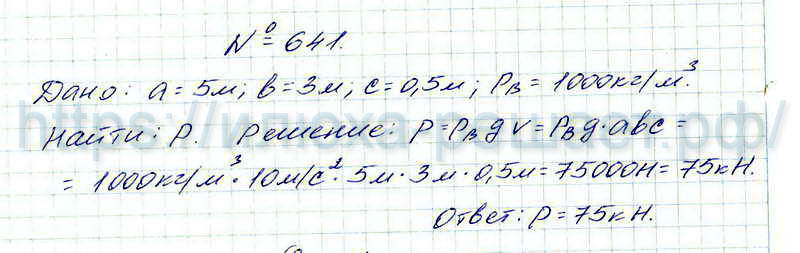 № 641.
Дано: a = 5м; b = 3м; c = 0,5м; ρв = 1000кг/м³.
Найти: P. Решение: P = ρв g V = ρв g · abc =
= 1000кг/м³ · 10м/с² · 5м · 3м · 0,5м = 75000Н = 75кН.
Ответ: P = 75кН.